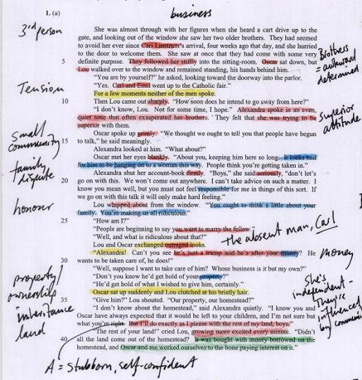 1. (a)
business
3rd person
She was almost through with her figures when she heard a cart drive up to the
gate, and looking out of the window she saw her two older brothers. They had seemed
to avoid her ever since Carl Linstrum's arrival, four weeks ago that day, and she hurried
to the door to welcome them. She saw at once that they had come with some very
5 definite purpose. They followed her stiffly into the sitting-room. Oscar sat down, but
Lou walked over to the window and remained standing, his hands behind him.
Brothers = awkward
determined
"You are by yourself?" he asked, looking toward the doorway into the parlor.
"Yes. Carl and Emil went up to the Catholic fair."
Tension
For a few moments neither of the men spoke.
10 Then Lou came out sharply. "How soon does he intend to go away from here?"
"I don't know, Lou. Not for some time, I hope." Alexandra spoke in an even,
quiet tone that often exasperated her brothers. They felt that she was trying to be
superior with them.
Superior
attitude
small
community
Oscar spoke up grimly. "We thought we ought to tell you that people have begun
15 to talk," he said meaningly.
Alexandra looked at him. "What about?"
Oscar met her eyes blankly. "About you, keeping him here so long. It looks bad
for him to be hanging on to a woman this way. People think you're getting taken in."
family
dispute
Alexandra shut her account-book firmly. "Boys," she said seriously, "don't let's
20 go on with this. We won't come out anywhere. I can't take advice on such a matter. I
know you mean well, but you must not feel responsible for me in things of this sort. If
we go on with this talk it will only make hard feeling."
honour
Lou whipped about from the window. "You ought to think a little about your
family. You're making us all ridiculous."
25 "How am I?"
"People are beginning to say you want to marry the fellow."
"Well, and what is ridiculous about that?"
the absent man, Carl
Lou and Oscar exchanged outraged looks.
"Alexandra! Can't you see he's just a tramp and he's after your money? He
30 wants to be taken care of, he does!"
money
"Well, suppose I want to take care of him? Whose business is it but my own?"
"Don't you know he'd get hold of your property?"
"He'd get hold of what I wished to give him, certainly."
property/
ownership
inheritance
land
Oscar sat up suddenly and Lou clutched at his bristly hair.
35 "Give him?" Lou shouted. "Our property, our homestead?"
"I don't know about the homestead," said Alexandra quietly. "I know you and
Oscar have always expected that it would be left to your children, and I'm not sure but
what you're right. But I'll do exactly as I please with the rest of my land, boys."
She's
independent -
They're
influenced
by
"The rest of your land!" cried Lou, growing more excited every minute. "Didn't
40 all the land come out of the homestead? It was bought with money borrowed on the
homestead, and Oscar and me worked ourselves to the bone paying interest on it."
A = stubborn, self-confident